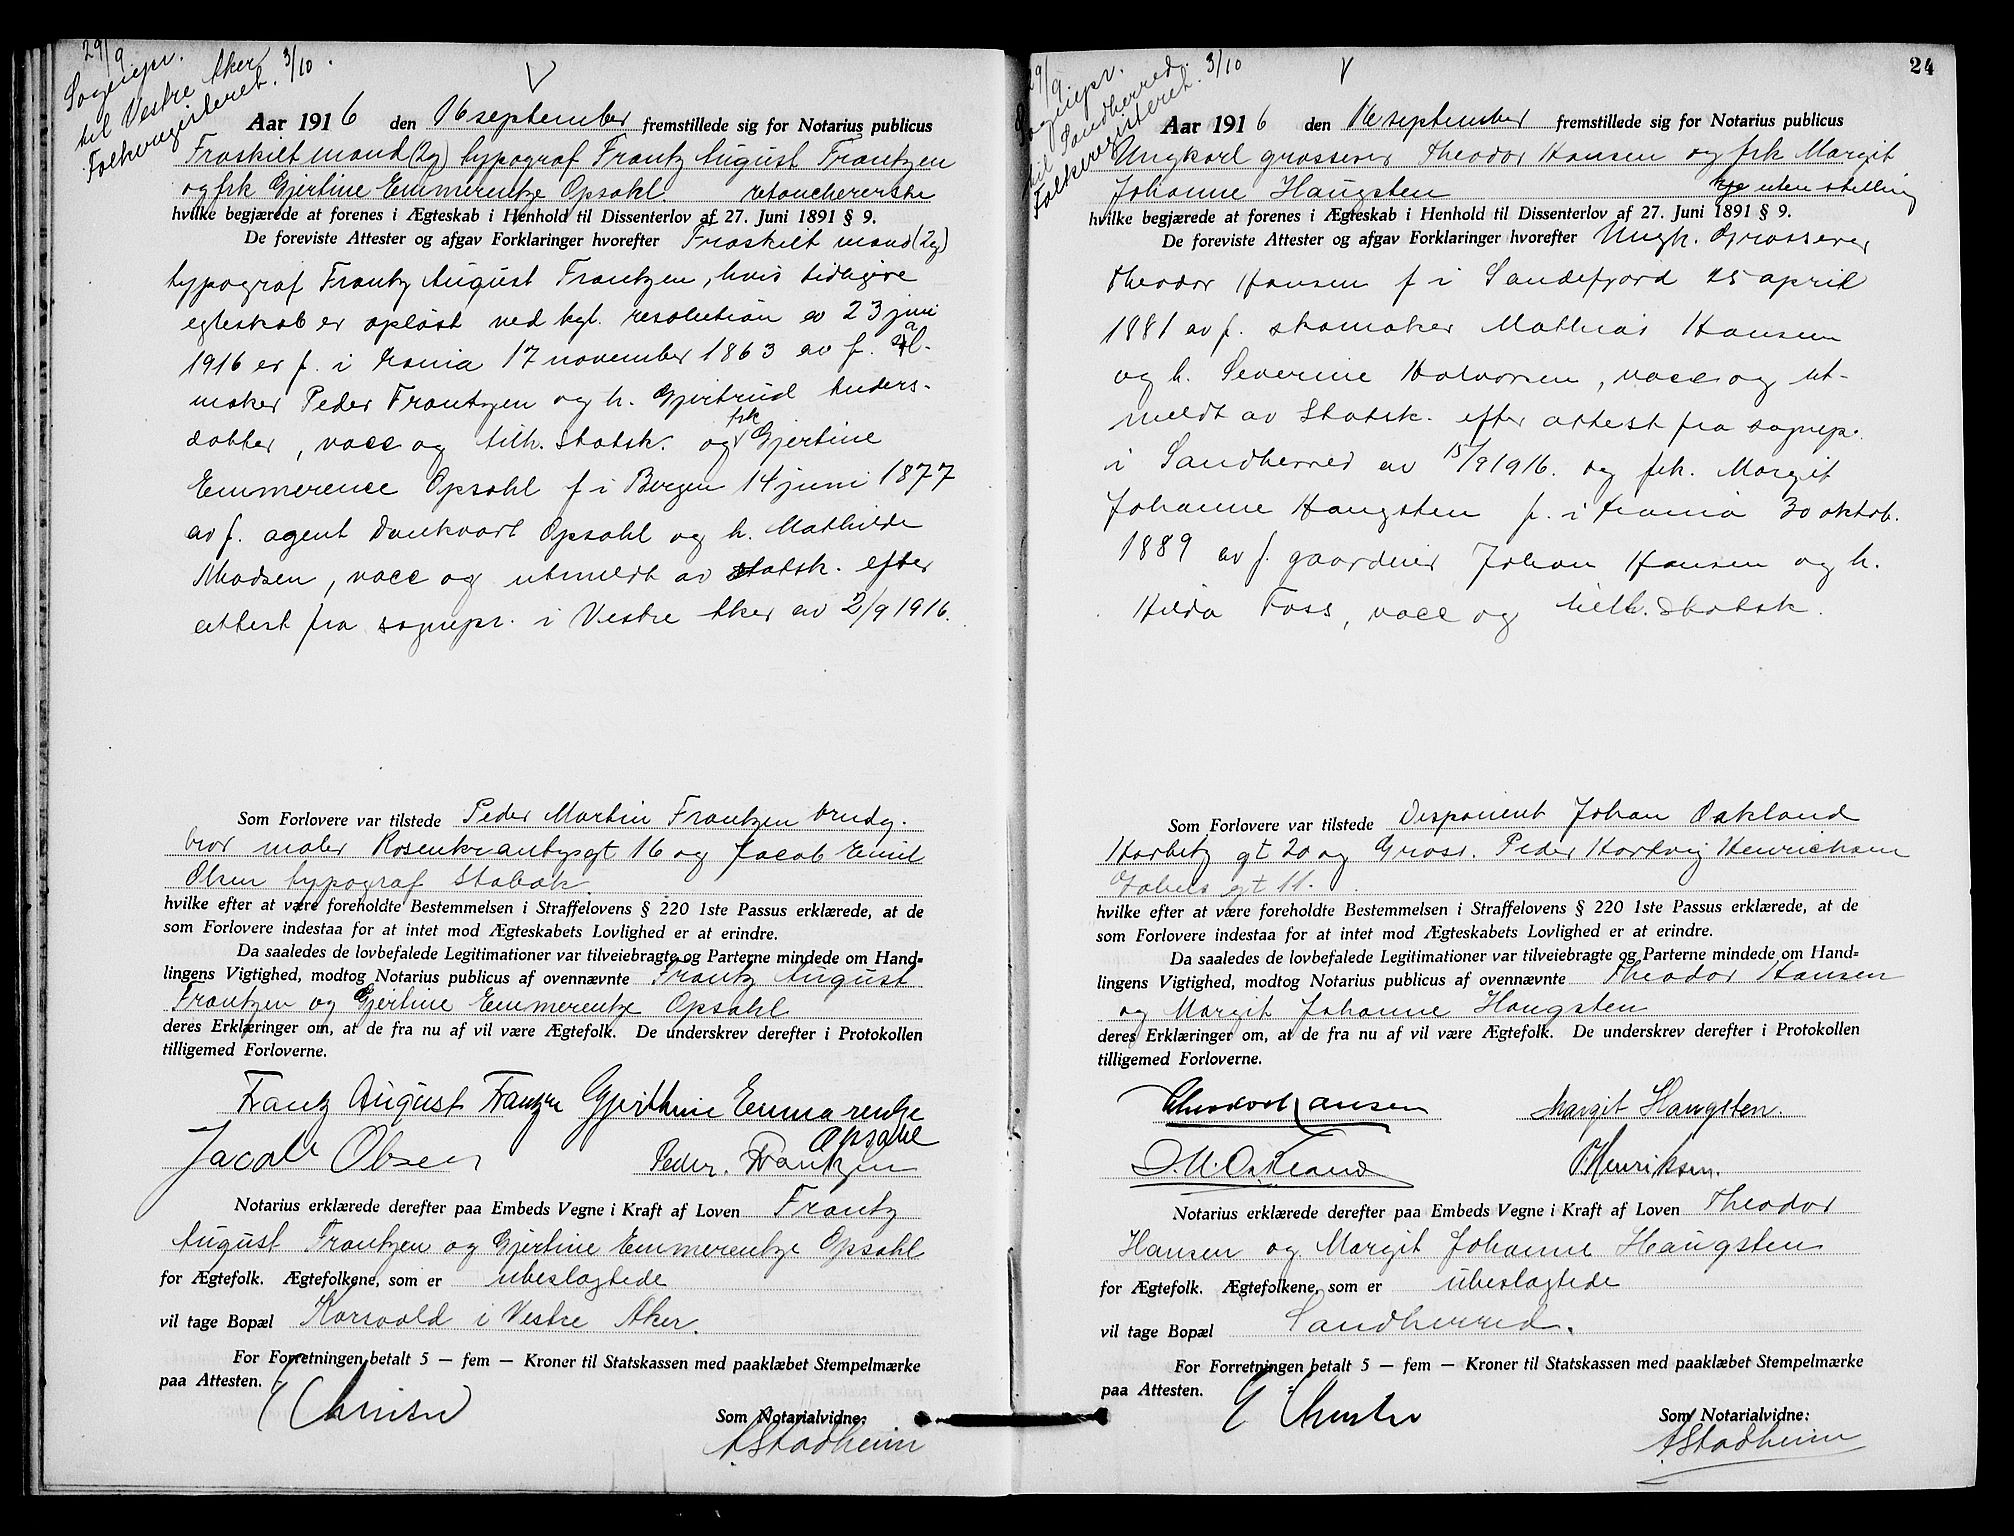 29/9
Sognepr.
til Vestre Aker
Folkeregisteret. 3/10.
Aar 1916 den 16 september fremstillede sig for Notarius publicus
Fraskilt mand (2g) typograf Frantz August Frantzen
og frk Gjertine Emmerentze Opsahl retouchererske
hvilke begjærede at forenes i Ægteskab i Henhold til Dissenterlov af 27. Juni 1891 § 9.
De foreviste Attester og afgav Forklaringer hvorefter Fraskilt mand (2g)
typograf Frantz August Frantzen, hvis tidligere
egteskab er opløst ved kgl. resolution av 23 juni
1916 er f. i Krania 17 november 1863 av f. sal-
maker Peder Frantzen og h. Gjertrud Anders-
datter, vacc og tilh. statsk. og frk Gjertine
Emmerence Opsahl f i Bergen 14 juni 1877
av f. agent Dankvart Opsahl og h. Mathilde
Madsen, vacc og utmeldt av statsk. efter
attest fra sognepr. i Vestre Aker av 2/9 1916.
Som Forlovere var tilstede Peder Martin Frantzen brudg.
bror maler Rosenkrantzgt 16 og Jacob Emil
Olsen typograf Stabæk.
hvilke efter at være foreholdte Bestemmelsen i Straffelovens § 220 1ste Passus erklærede, at de
som Forlovere indestaa for at intet mod Ægteskabets Lovlighed er at erindre.
Da saaledes de lovbefalede Legitimationer var tilveiebragte og Parterne mindede om Hand-
lingens Vigtighed, modtog Notarius publicus af ovennævnte Frantz August
Frantzen og Gjertine Emmerentze Opsahl
deres Erklæringer om, at de fra nu af vil være Ægtefolk. De underskrev derefter i Protokollen
tilligemed Forloverne.
Frantz August Frantzen Gjerthine Emmarentze
Opsahl
Jacob Olsen Peder. Frantzen
Notarius erklærede derefter paa Embeds Vegne i Kraft af Loven Frantz
August Frantzen og Gjertine Emmerentze Opsahl
for Ægtefolk. Ægtefolkene, som er ubeslagtede
vil tage Bopæl Korsvold i Vestre Aker.
For Forretningen betalt 5 — fem — Kroner til Statskassen med paaklæbet Stempelmærke
paa Attesten.
Som Notarialvidne:
AStadheim
24
29/9
Sognepr.
til Sandherred.
Folkeregisteret. 3/10
Aar 1916 den 16 september fremstillede sig for Notarius publicus
Ungkarl grosserer Theodor Hansen og frk Margit
Johanne Haugsten uten stilling
hvilke begjærede at forenes i Ægteskab i Henhold til Dissenterlov af 27. Juni 1891 § 9.
De foreviste Attester og afgav Forklaringer hvorefter Ungk. Grosserer
Theodor Hansen f i Sandefjord 25 april
1881 av f. skomaker Mathias Hansen
og h. Severine Halvorsen, vacc og ut-
meldt av Statsk. efter attest fra sognepr.
i Sandherred av 15/9 1916. og frk. Margit
Johanne Haugsten f. i Krania 30 oktob.
1889 av f. gaardeier Johan Hansen og h.
Hilda Foss, vacc og tilh. Statsk.
Som Forlovere var tilstede Disponent Johan Oakland
Harbitz gt 20 og Gross. Peder Hartvig Henriksen
Gabels gt 11.
hvilke efter at være foreholdte Bestemmelsen i Straffelovens § 220 1ste Passus erklærede, at de
som Forlovere indestaa for at intet mod Ægteskabets Lovlighed er at erindre.
Da saaledes de lovbefalede Legitimationer var tilveiebragte og Parterne mindede om Hand-
lingens Vigtighed, modtog Notarius publicus af ovennævnte Theodor Hansen
og Margit Johanne Haugsten
deres Erklæringer om, at de fra nu af vil være Ægtefolk. De underskrev derefter i Protokollen
tilligemed Forloverne.
Theodor Hansen Margit Haugsten.
J. M. Oakland P. Henriksen.
Notarius erklærede derefter paa Embeds Vegne i Kraft af Loven Theodor
Hansen og Margit Johanne Haugsten
for Ægtefolk. Ægtefolkene, som er ubeslagtede
vil tage Bopæl Sandherred.
For Forretningen betalt 5 — fem — Kroner til Statskassen med paaklæbet Stempelmærke
paa Attesten.
Som Notarialvidne:
AStadheim